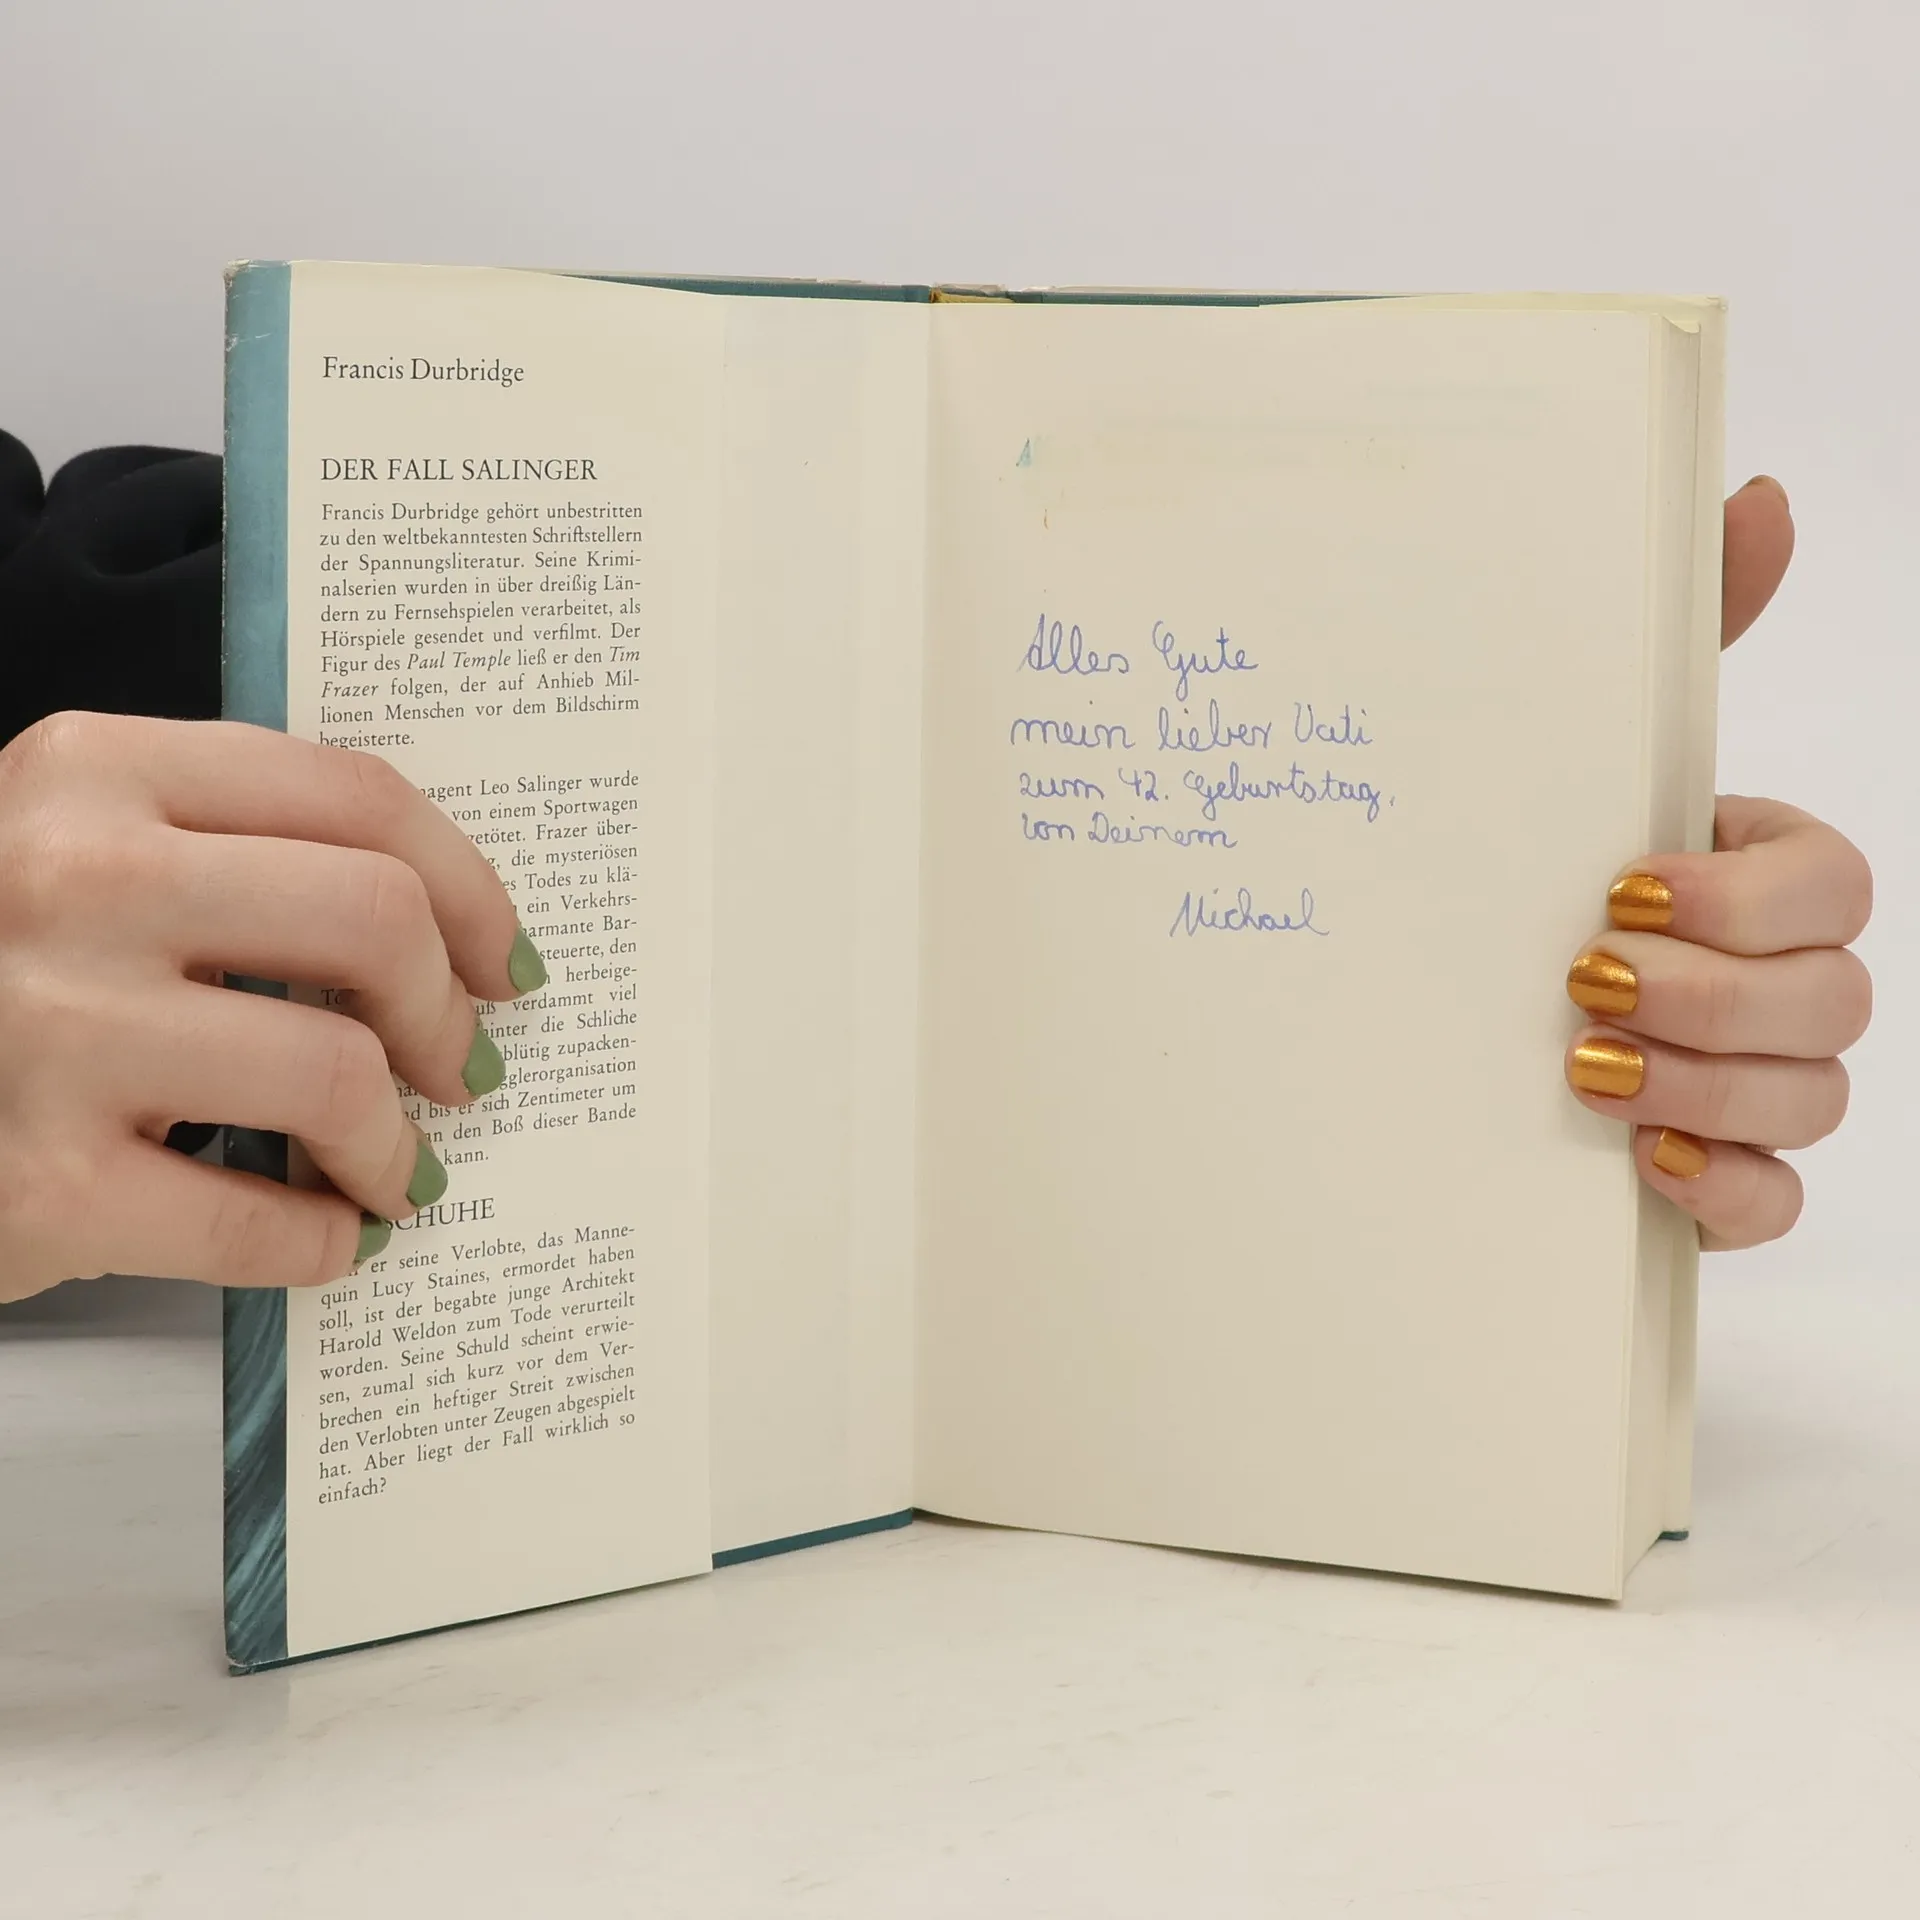 Francis Durbridge
DER FALL SALINGER
Francis Durbridge gehört unbestritten
zu den weltbekanntesten Schriftstellern
der Spannungsliteratur. Seine Krimi-
nalserien wurden in über dreißig Län-
dern zu Fernsehspielen verarbeitet, als
Hörspiele gesendet und verfilmt. Der
Figur des Paul Temple ließ er den Tim
Frazer folgen, der auf Anhieb Mil-
lionen Menschen vor dem Bildschirm
begeisterte.
Leo Salinger wurde
von einem Sportwagen
getötet. Frazer über-
die mysteriösen
Todes zu klä-
ein Verkehrs-
Bar-
steuerte, den
herbeige-
verdammt viel
hinter die Schliche
zupacken-
bis er sich Zentimeter um
an den Boß dieser Bande
kann.
er seine Verlobte, das Manne-
quin Lucy Staines, ermordet haben
soll, ist der begabte junge Architekt
Harold Weldon zum Tode verurteilt
worden. Seine Schuld scheint erwie-
sen, zumal sich kurz vor dem Ver-
brechen ein heftiger Streit zwischen
den Verlobten unter Zeugen abgespielt
hat. Aber liegt der Fall wirklich so
einfach?
Alles Gute
mein lieber Vati
zum 42. Geburtstag,
von Deinem
Michael